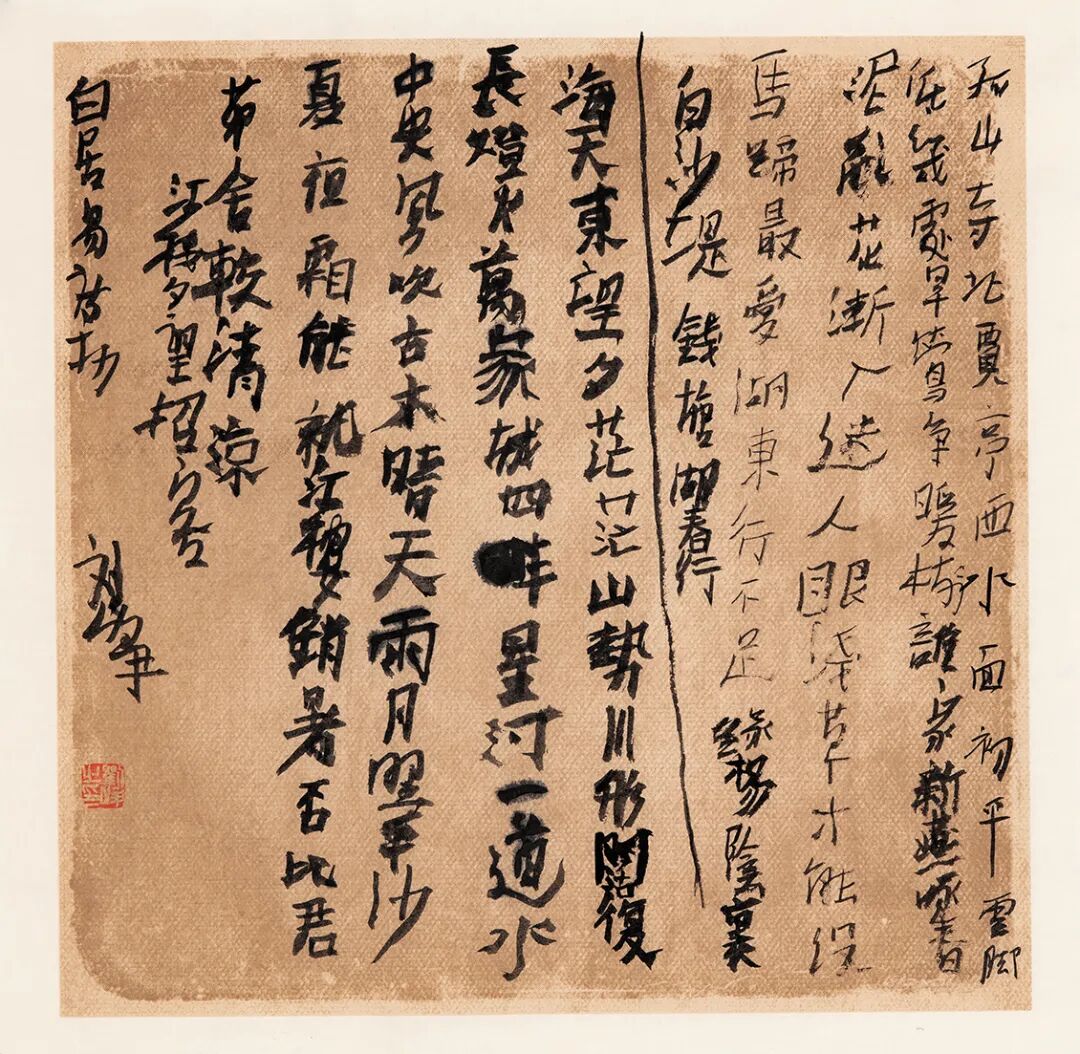 孤山寺北賈亭西水面初平雲脚
低幾處早鶯争暖樹誰家新燕啄春
泥亂花漸入迷人眼淺草才能没
馬蹄最愛湖東行不足綠楊陰裏
白沙堤 錢塘湖春行
海天東望夕茫茫山勢川形闊復
長燈火萬家城四畔星河一道水
中央風吹古木晴天雨月照平沙
夏夜霜能就江樓銷暑否比君
茅舍較清涼
江樓夕望招客
白居易詩抄